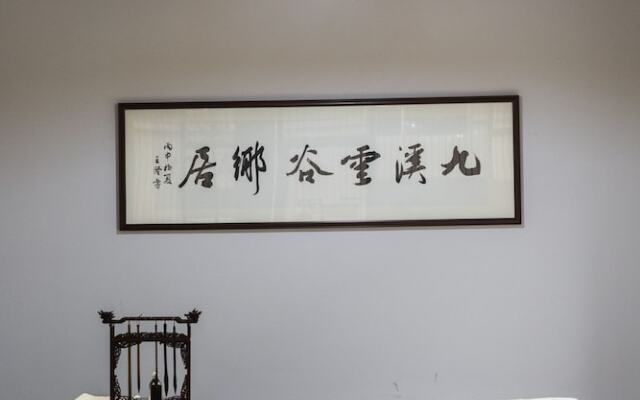 九溪雲谷鄉居
丙申初夏